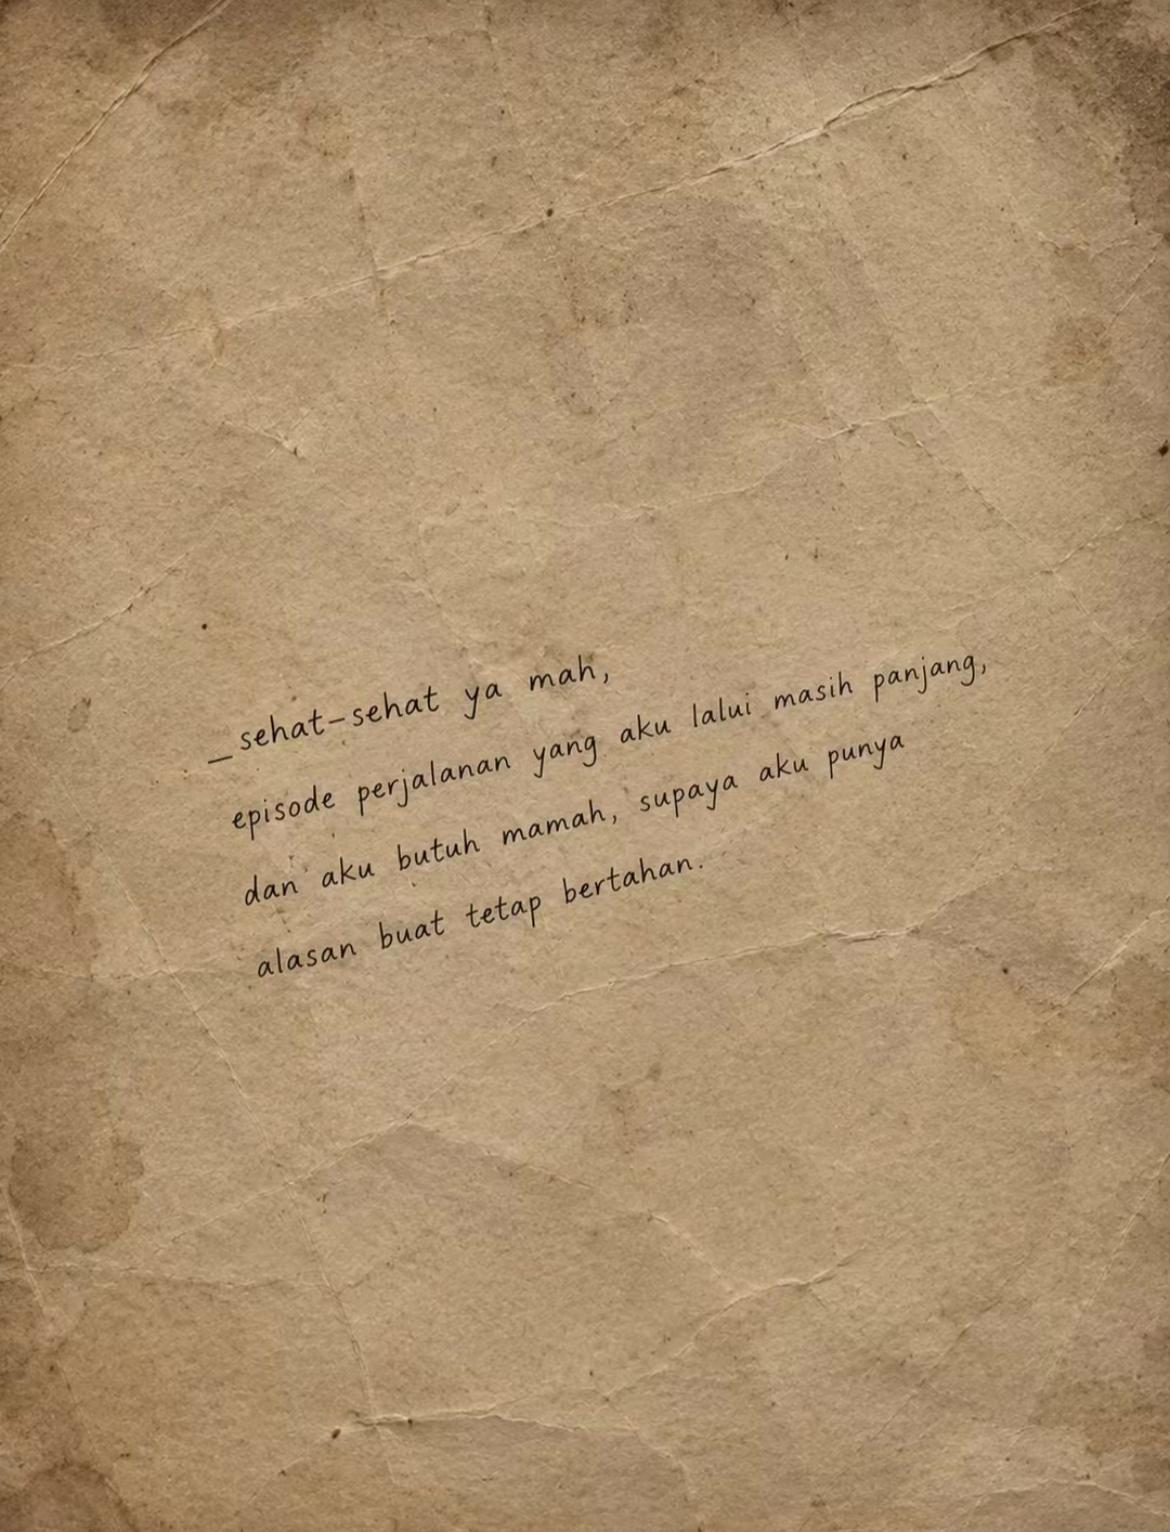 _sehat-sehat ya mah,
episode perjalanan yang aku lalui masih panjang,
dan aku butuh mamah, supaya aku punya
alasan buat tetap bertahan.